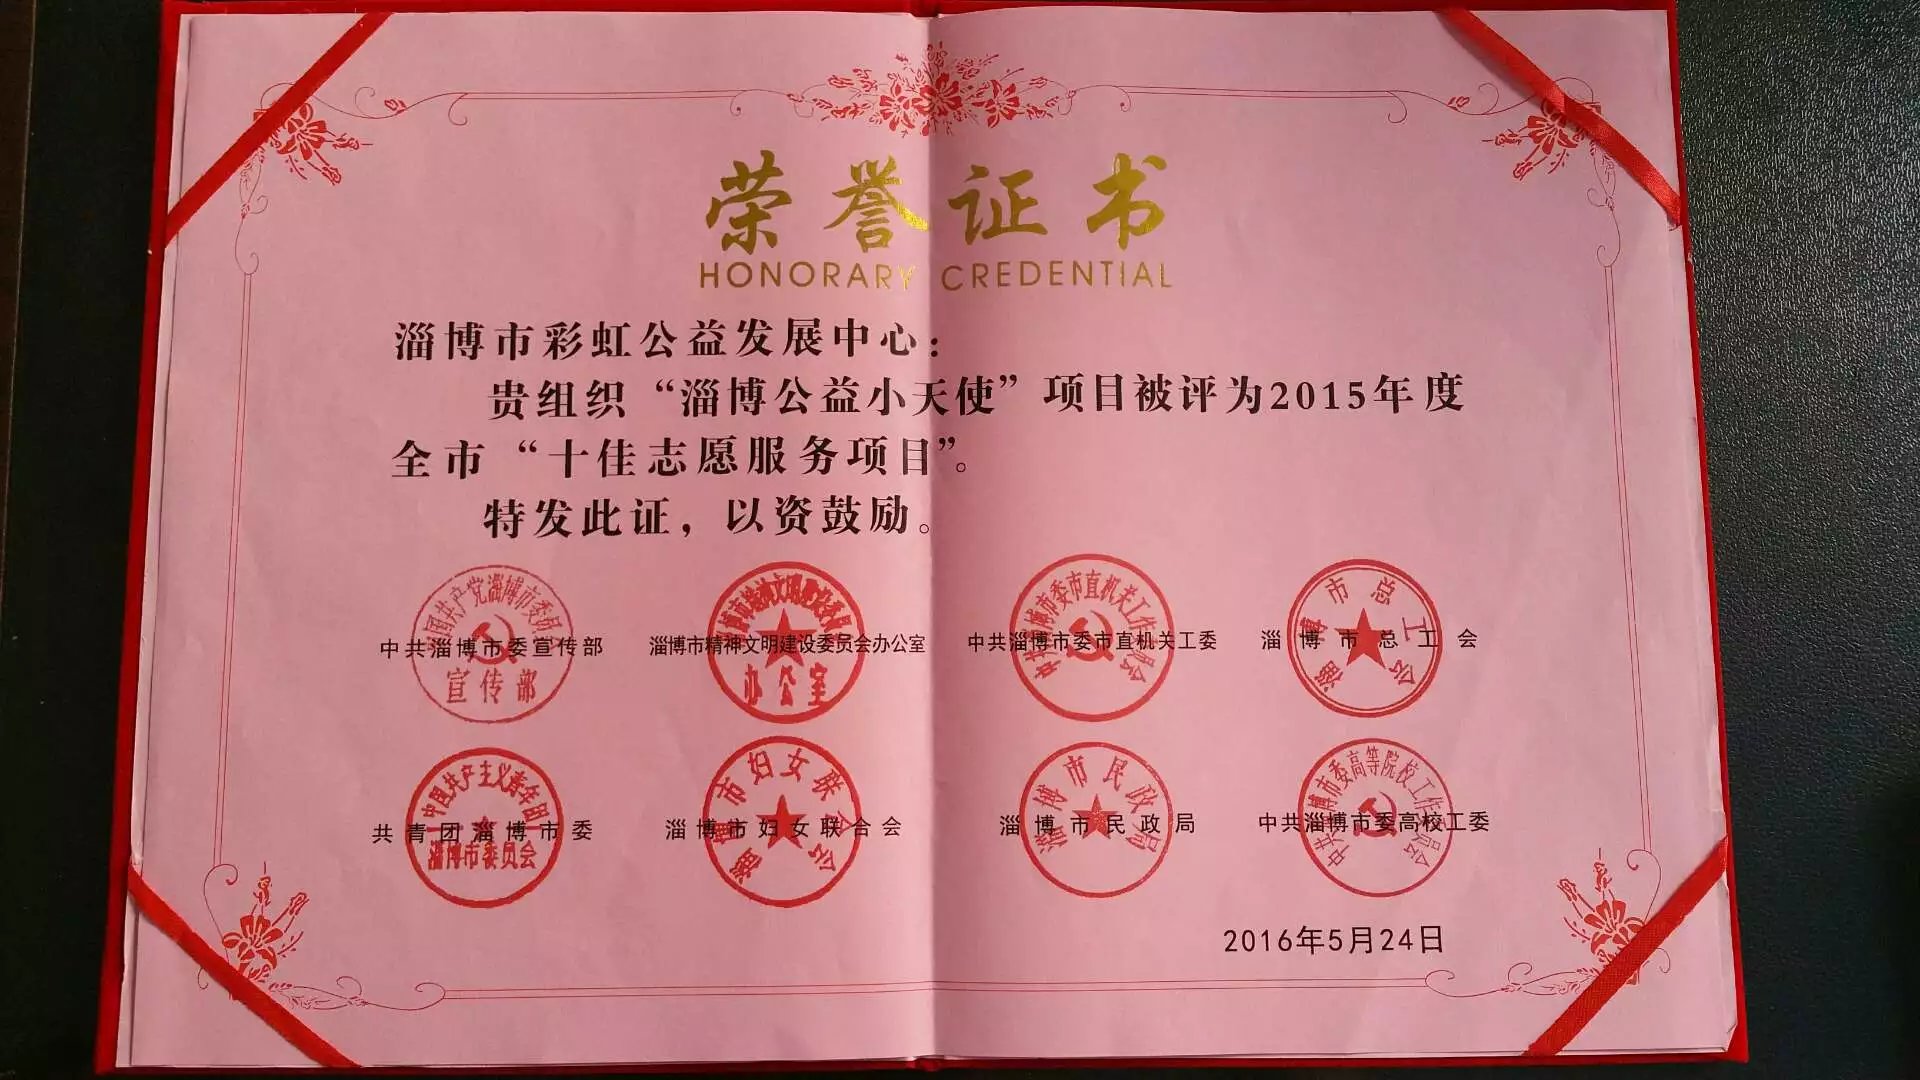 荣誉证书
HONORARY CREDENTIAL
淄博市彩虹公益发展中心：
贵组织“淄博公益小天使”项目被评为2015年度
全市“十佳志愿服务项目”。
特发此证，以资鼓励。
中共淄博市委宣传部 淄博市精神文明建设委员会办公室 中共淄博市委市直机关工委 淄博市总工会
中国共产党淄博市委员会
宣传部
办公室
淄博市总工会
共青团淄博市委 淄博市妇女联合会 淄博市民政局 中共淄博市委高校工委
中国共产主义青年团
淄博市委员会
淄博市妇女联合会
淄博市民政局
2016年5月24日